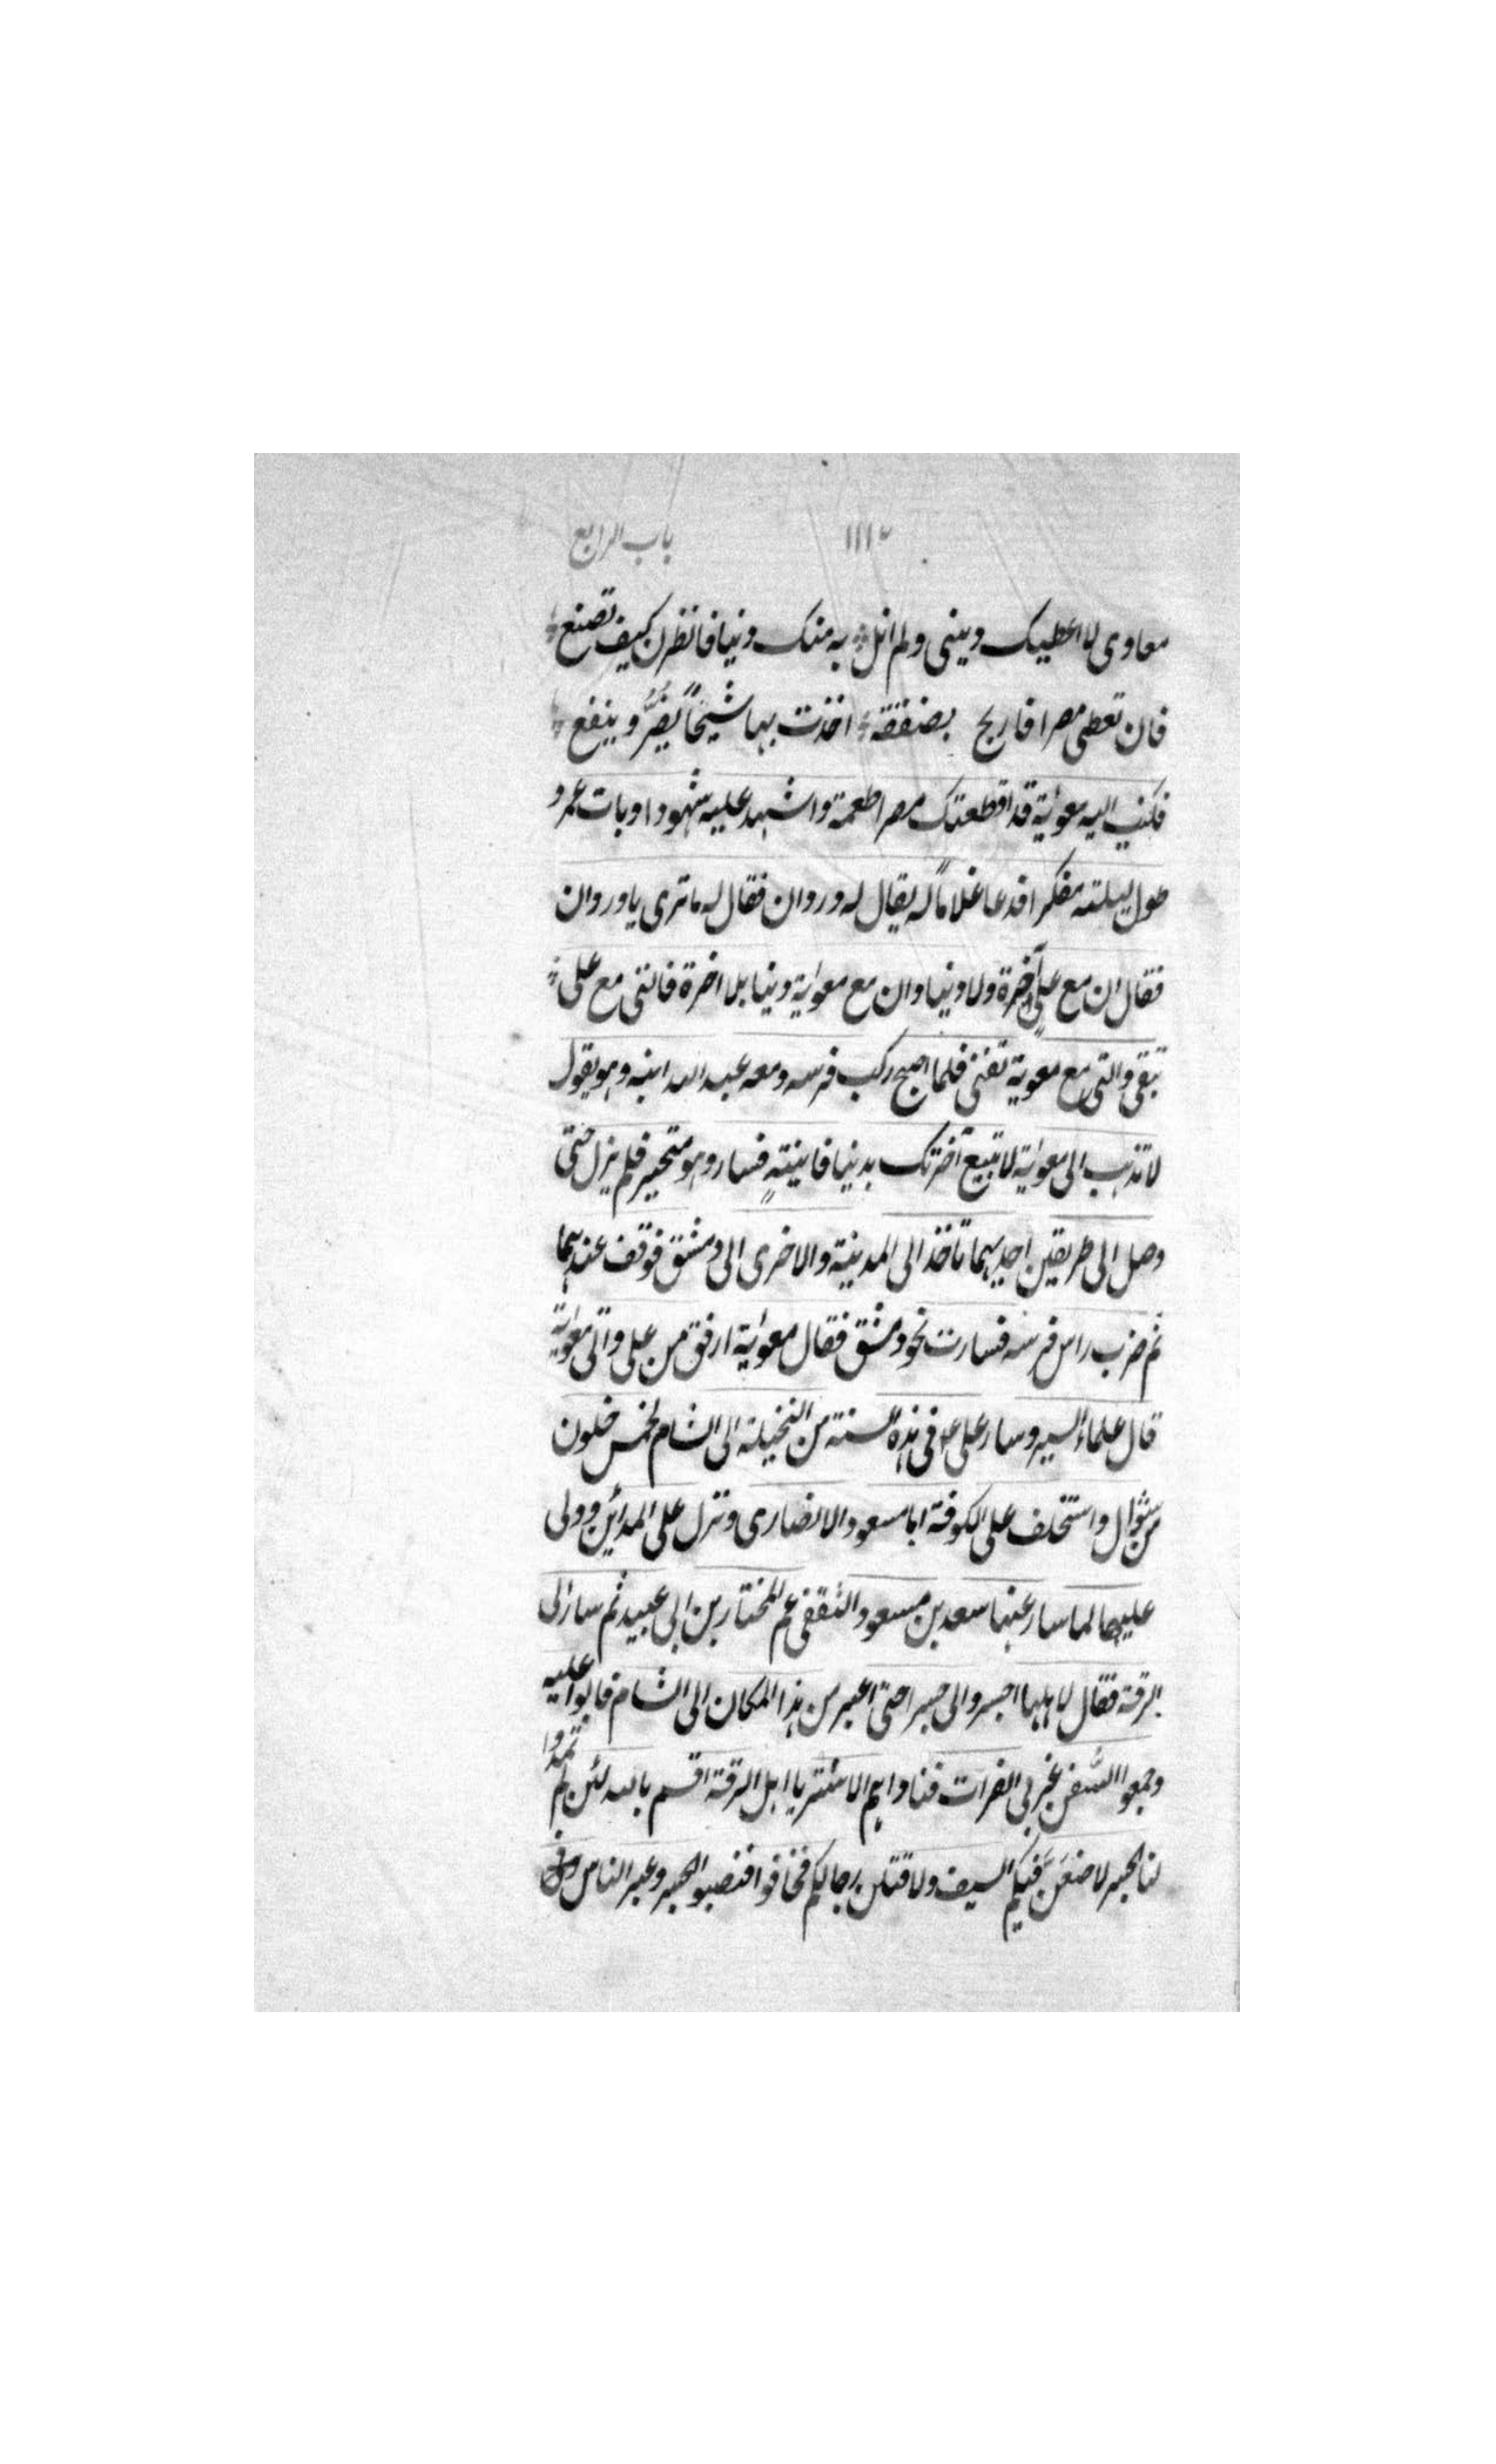 ١١١ باب الرابع
معاوى لا اعطيك دينى ولم انل به منك دنيا فانظرن كيف تصنع
فان تعطى مصرا فاربح بصفقة اخذت بها شيخًا يضرُّ وينفع
فكتب اليه معوية قد اقطعتك مصرا طعمة واشهد عليه شهودا وبات عمرو
طول ليلته مفكرا فدعا غلامًا له يقال له وردان فقال له ما ترى يا وردان
فقال ان مع علي آخرة ولا دنيا وان مع معوية دنيا بلا اخرة فالتى مع على
تبقى والتى مع معوية تفنى فلما اصبح ركب فرسه ومعه عبد الله ابنه وهو يقول
لا تذهب الى معوية لا تبيع آخرتك بدنيا فانيةٍ فسار وهو متحير فلم يزل حتى
وصل الى طريقين احديهما تاخذ الى المدينة والاخرى الى دمشق فوقف عندهما
ثم ضرب راس فرسه فسارت نحو دمشق فقال معوية ارفق من على واتى معوية
قال علماء السير وسار على ع فى هذه السنة من النخيلة الى الشام لخمس خلون
من شوال واستخلف على الكوفة ابا مسعود الانصارى ونزل على المدائن وولى
عليها لما سار عنها سعد بن مسعود الثقفى عم المختار بن ابى عبيد ثم سار الى
الرقة فقال لاهلها اجسروا لى جسرا حتى اعبر من هذا المكان الى الشام فابوا عليه
وجمعوا السُّفن غربى الفرات فناداهم الاشتر يا اهل الرقة اقسم بالله لئن لم تمدوا
لنا الجسر لاضعنَّ فيكم السيف ولاقتلن رجالكم فخافوا فنصبوا الجسر وعبر الناس وفى